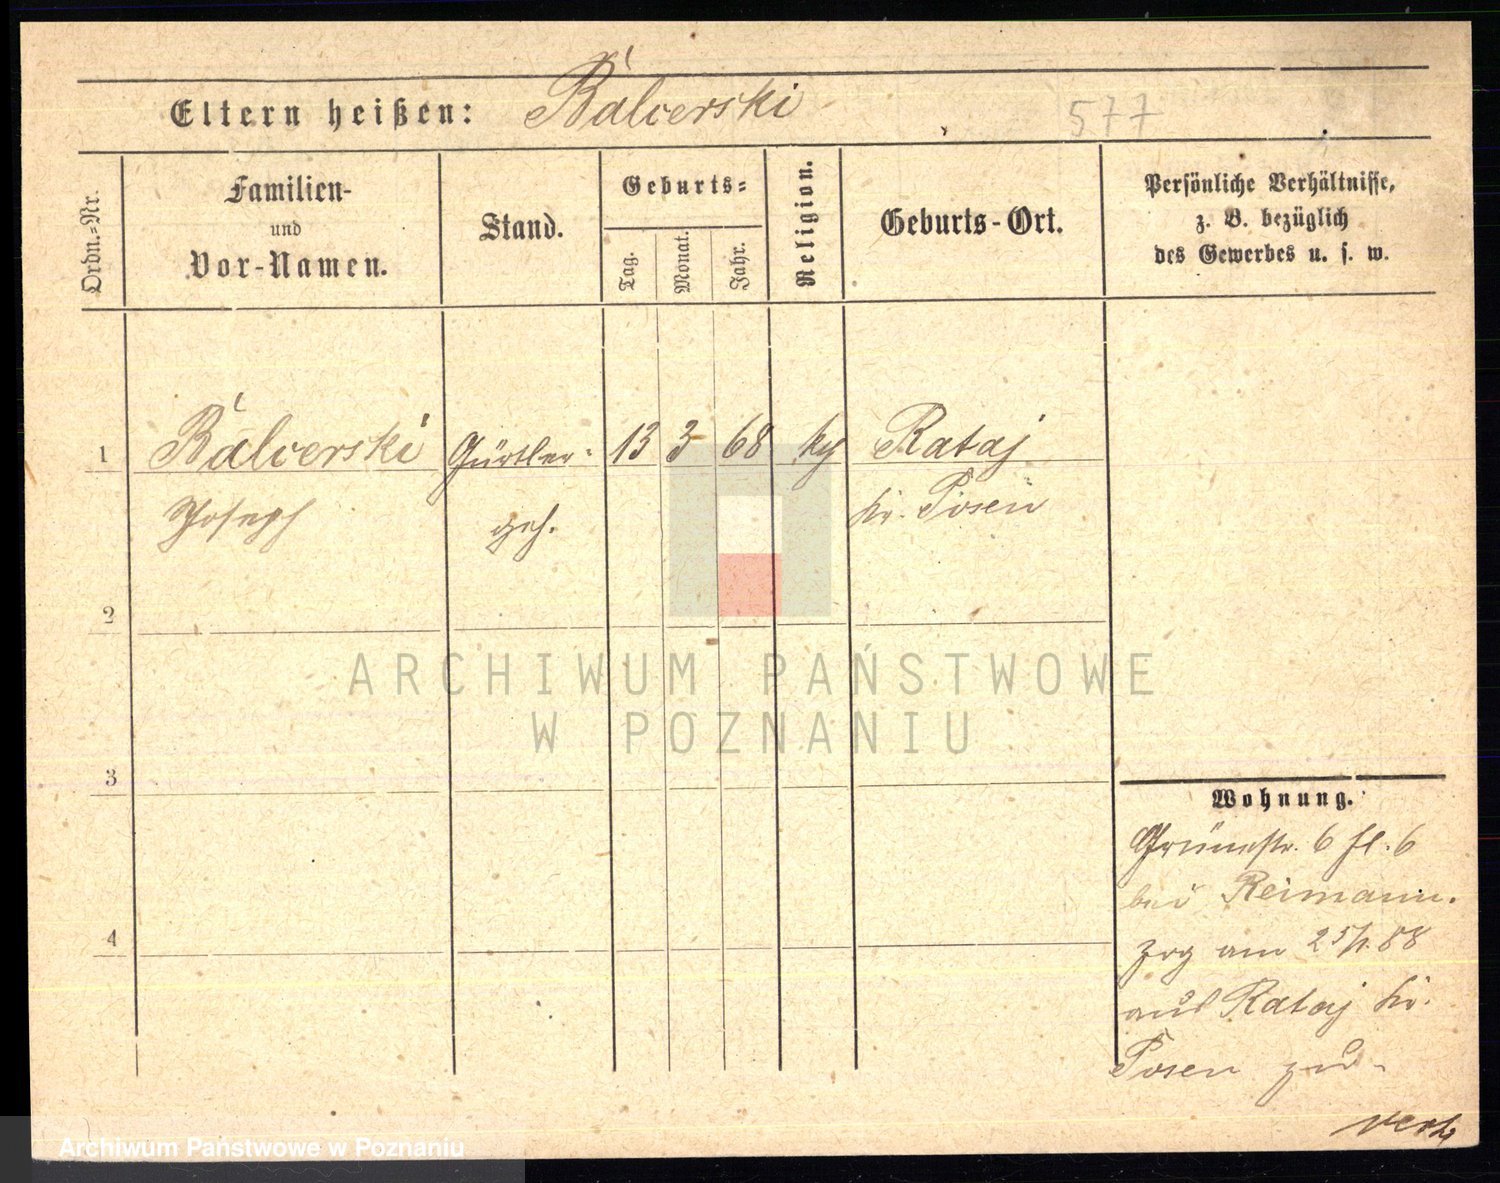 Eltern heißen: Balcerski 577
Ordn.-Nr.
Familien-
und
Vor-Namen.
Stand.
Geburts-
Tag.
Monat.
Jahr.
Religion.
Geburts-Ort.
Persönliche Verhältnisse,
z. B. bezüglich
des Gewerbes u. s. w.
1 Balcerski Gürtler- 13 3 68 Rataj
Joseph geh. Kr. Posen
2
3
4
ARCHIWUM PAŃSTWOWE
W POZNANIU
Wohnung.
Grünestr. 6 6
bei Reimann.
zog am 25/1. 88
aus Rataj Kr.
Posen zu-
Archiwum Państwowe w Poznaniu